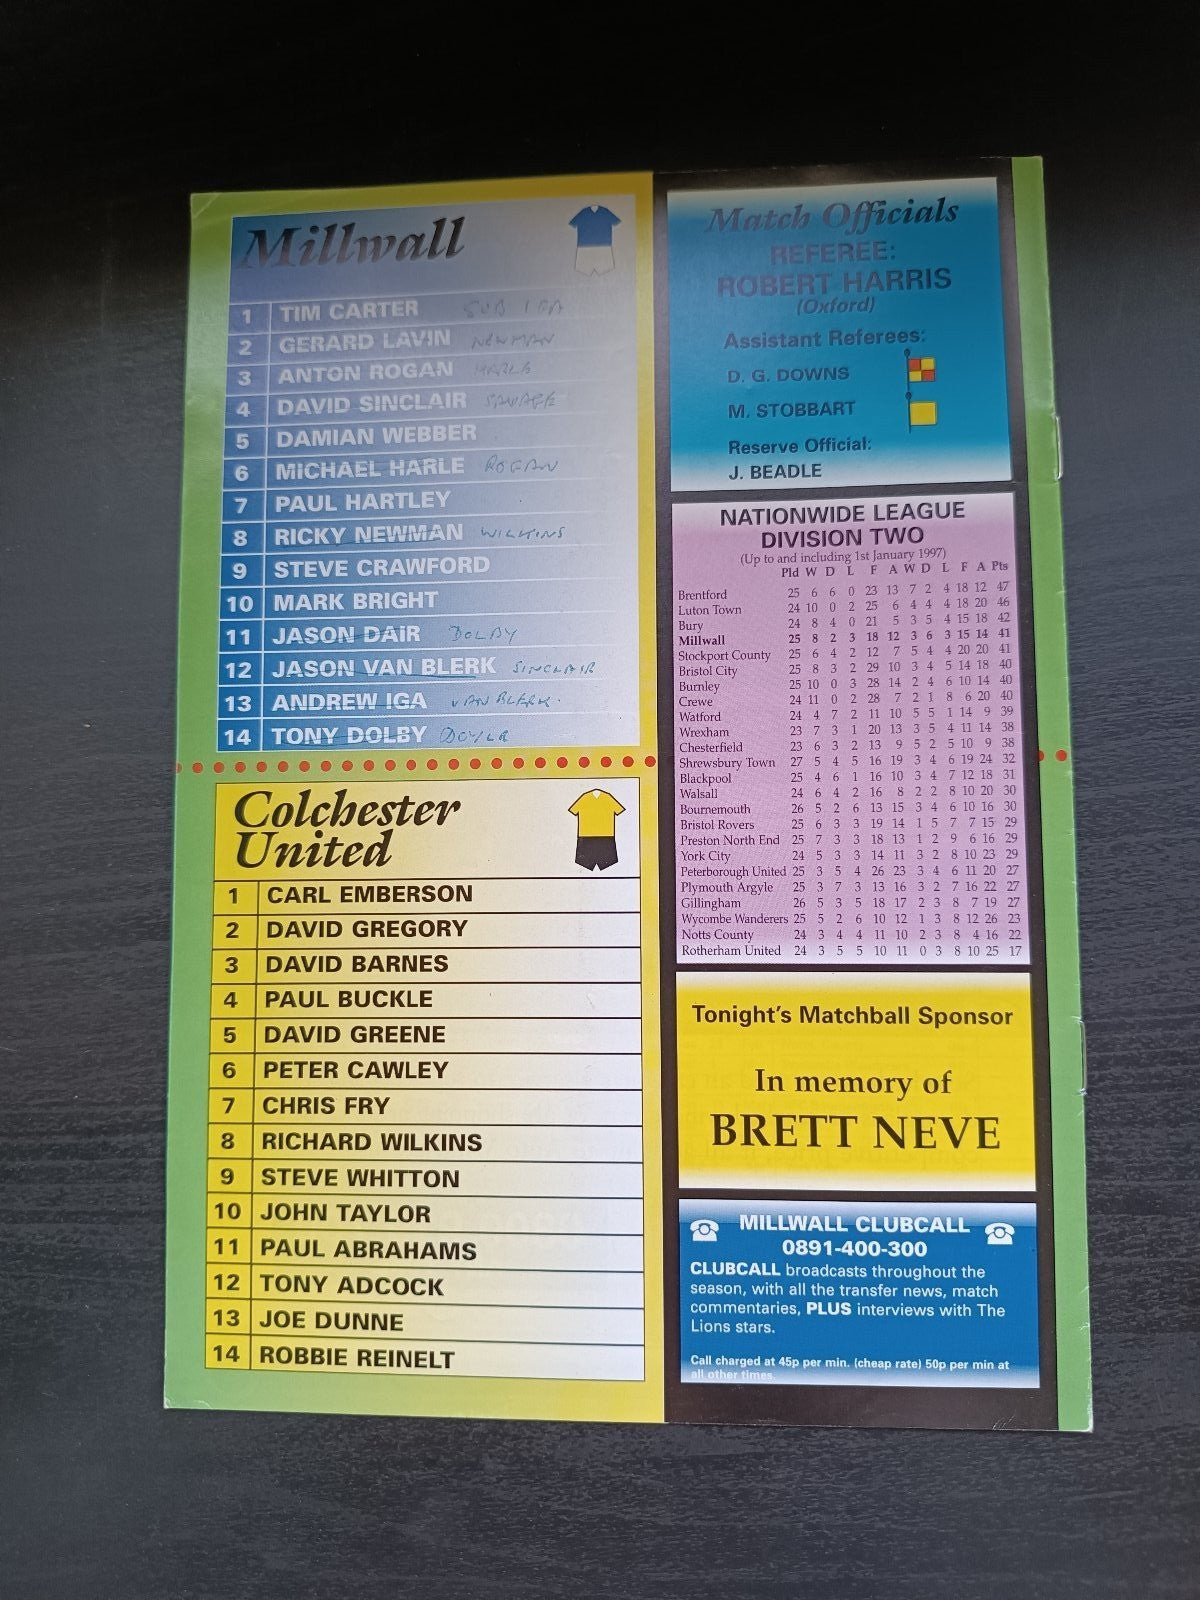 Millwall
1 TIM CARTER SUB IGA
2 GERARD LAVIN NEWMAN
3 ANTON ROGAN HARLE
4 DAVID SINCLAIR SAVAGE
5 DAMIAN WEBBER
6 MICHAEL HARLE ROGAN
7 PAUL HARTLEY
8 RICKY NEWMAN WILKINS
9 STEVE CRAWFORD
10 MARK BRIGHT
11 JASON DAIR DOLBY
12 JASON VAN BLERK SINCLAIR
13 ANDREW IGA VAN BLERK
14 TONY DOLBY DOYLE
Colchester
United
1 CARL EMBERSON
2 DAVID GREGORY
3 DAVID BARNES
4 PAUL BUCKLE
5 DAVID GREENE
6 PETER CAWLEY
7 CHRIS FRY
8 RICHARD WILKINS
9 STEVE WHITTON
10 JOHN TAYLOR
11 PAUL ABRAHAMS
12 TONY ADCOCK
13 JOE DUNNE
14 ROBBIE REINELT
Match Officials
REFEREE:
ROBERT HARRIS
(Oxford)
Assistant Referees:
D. G. DOWNS
M. STOBBART
Reserve Official:
J. BEADLE
NATIONWIDE LEAGUE
DIVISION TWO
(Up to and including 1st January 1997)
Pld W D L F A W D L F A Pts
Brentford 25 6 6 0 23 13 7 2 4 18 12 47
Luton Town 24 10 0 2 25 6 4 4 4 18 20 46
Bury 24 8 4 0 21 5 3 5 4 15 18 42
Millwall 25 8 2 3 18 12 3 6 3 15 14 41
Stockport County 25 6 4 2 12 7 5 4 4 20 20 41
Bristol City 25 8 3 2 29 10 3 4 5 14 18 40
Burnley 25 10 0 3 28 14 2 4 6 10 14 40
Crewe 24 11 0 2 28 7 2 1 8 6 20 40
Watford 24 4 7 2 11 10 5 5 1 14 9 39
Wrexham 23 7 3 1 20 13 3 5 4 11 14 38
Chesterfield 23 6 3 2 13 9 5 2 5 10 9 38
Shrewsbury Town 27 5 4 5 16 19 3 4 6 19 24 32
Blackpool 25 4 6 1 16 10 3 4 7 12 18 31
Walsall 24 6 4 2 16 8 2 2 8 10 20 30
Bournemouth 26 5 2 6 13 15 3 4 6 10 16 30
Bristol Rovers 25 6 3 3 19 14 1 5 7 7 15 29
Preston North End 25 7 3 3 18 13 1 2 9 6 16 29
York City 24 5 3 3 14 11 3 2 8 10 23 29
Peterborough United 25 3 5 4 26 23 3 4 6 11 20 27
Plymouth Argyle 25 3 7 3 13 16 3 2 7 16 22 27
Gillingham 26 5 3 5 18 17 2 3 8 7 19 27
Wycombe Wanderers 25 5 2 6 10 12 1 3 8 12 26 23
Notts County 24 3 4 4 11 10 2 3 8 4 16 22
Rotherham United 24 3 5 5 10 11 0 3 8 10 25 17
Tonight's Matchball Sponsor
In memory of
BRETT NEVE
MILLWALL CLUBCALL
0891-400-300
CLUBCALL broadcasts throughout the
season, with all the transfer news, match
commentaries, PLUS interviews with The
Lions stars.
Call charged at 45p per min. (cheap rate) 50p per min at
all other times.